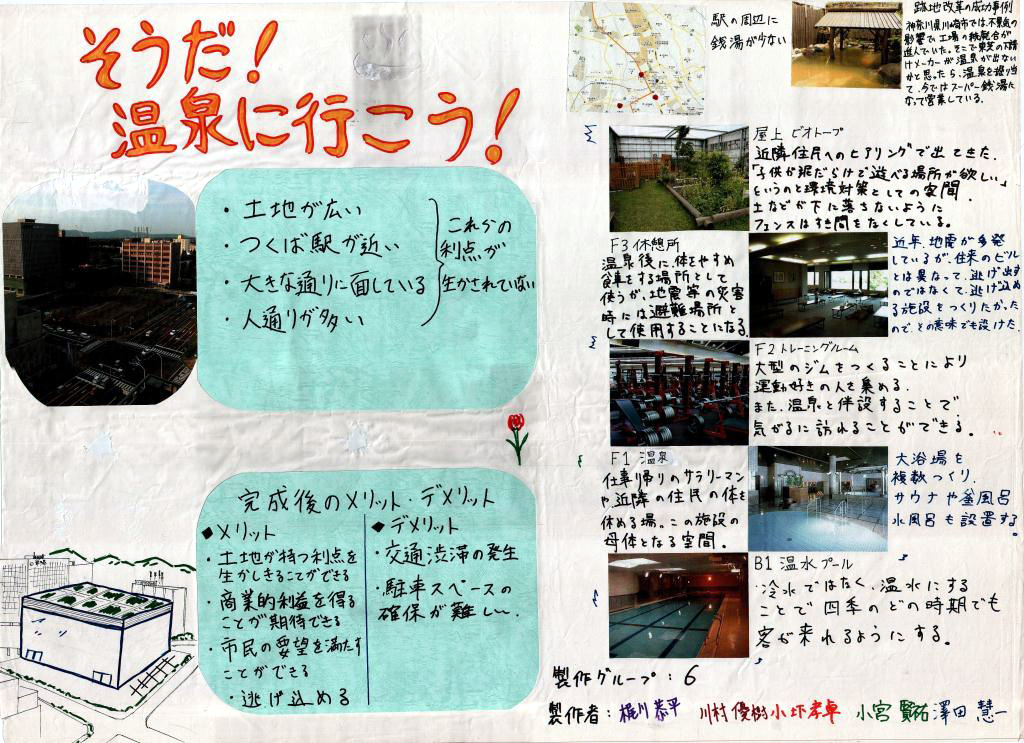 そうだ!
温泉に行こう!
・土地が広い
・つくば駅が近い
・大きな通りに面している
・人通りが多い
これらの
利点が
生かされていない
完成後のメリット・デメリット
◆メリット
・土地が持つ利点を
生かしきることができる
・商業的利益を得る
ことが期待できる
・市民の要望を満たす
ことができる
・逃げ込める
◆デメリット
・交通渋滞の発生
・駐車スペースの
確保が難しい.
駅の周辺に
銭湯が少ない
跡地改革の成功事例
神奈川県川崎市では、不景気の
影響で、工場の統廃合が
進んでいた。そこで東芝の下請
けメーカーが温泉が出ない
かと思ったら、温泉を掘り当
て、今ではスーパー銭湯に
なって営業している。
屋上 ビオトープ
近隣住民へのヒアリングで出てきた、
「子供が泥だらけで遊べる場所が欲しい」
というのと環境対策としての空間。
土などが下に落ちないように
フェンスはすき間をなくしている。
F3 休憩所
温泉後に、体をやすめ
食事をする場所として
使うが、地震等の災害
時には避難場所と
して使用することになる。
近年、地震が多発
しているが、従来のビル
とは異なって、逃げ出す
のではなくて、逃げ込め
る施設をつくりたかった
ので、その意味でも設けた。
F2 トレーニングルーム
大型のジムをつくることにより
運動好きの人を集める.
また、温泉と併設することで
気がるに訪れることができる。
F1 温泉
仕事帰りのサラリーマン
や、近隣の住民の体を
休める場。この施設の
母体となる空間.
大浴場を
複数つくり、
サウナや釜風呂
水風呂も設置する
B1 温水プール
冷水ではなく、温水にする
ことで四季のどの時期でも
客が来れるようにする。
製作グループ:6
製作者: 梶川恭平 川村優樹 小坏孝卓 小宮賢祐 澤田慧一